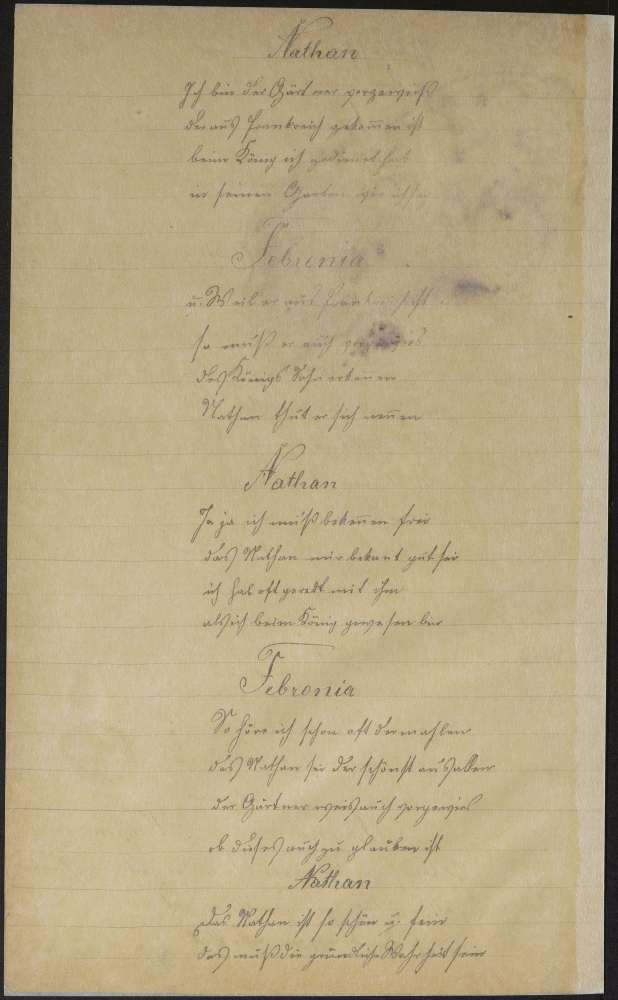 Nathan
Ich bin der Gärtner vorgewiß
der aus Frankreich gekommen ist
beim König ich gedienet hab
in seinen Garten
Febronia
u. Weil er aus Frankreich ist
so muß er auch
des Königs Sohn erkennen
Nathan thut er sich nennen
Nathan
Ja ja ich muß bekennen frei
das Nathan mir bekant gut sei
ich hab oft geredt mit ihm
als ich beim König gewesen bin
Febronia
So höre ich schon oft dermahlen
das Nathan sei der schönst aus allen
der Gärtner weis auch vorgewis
ob dieses auch zu glauben ist
Nathan
Das Nathan ist so schön u. fein
das muß die gründliche Wahrheit sein